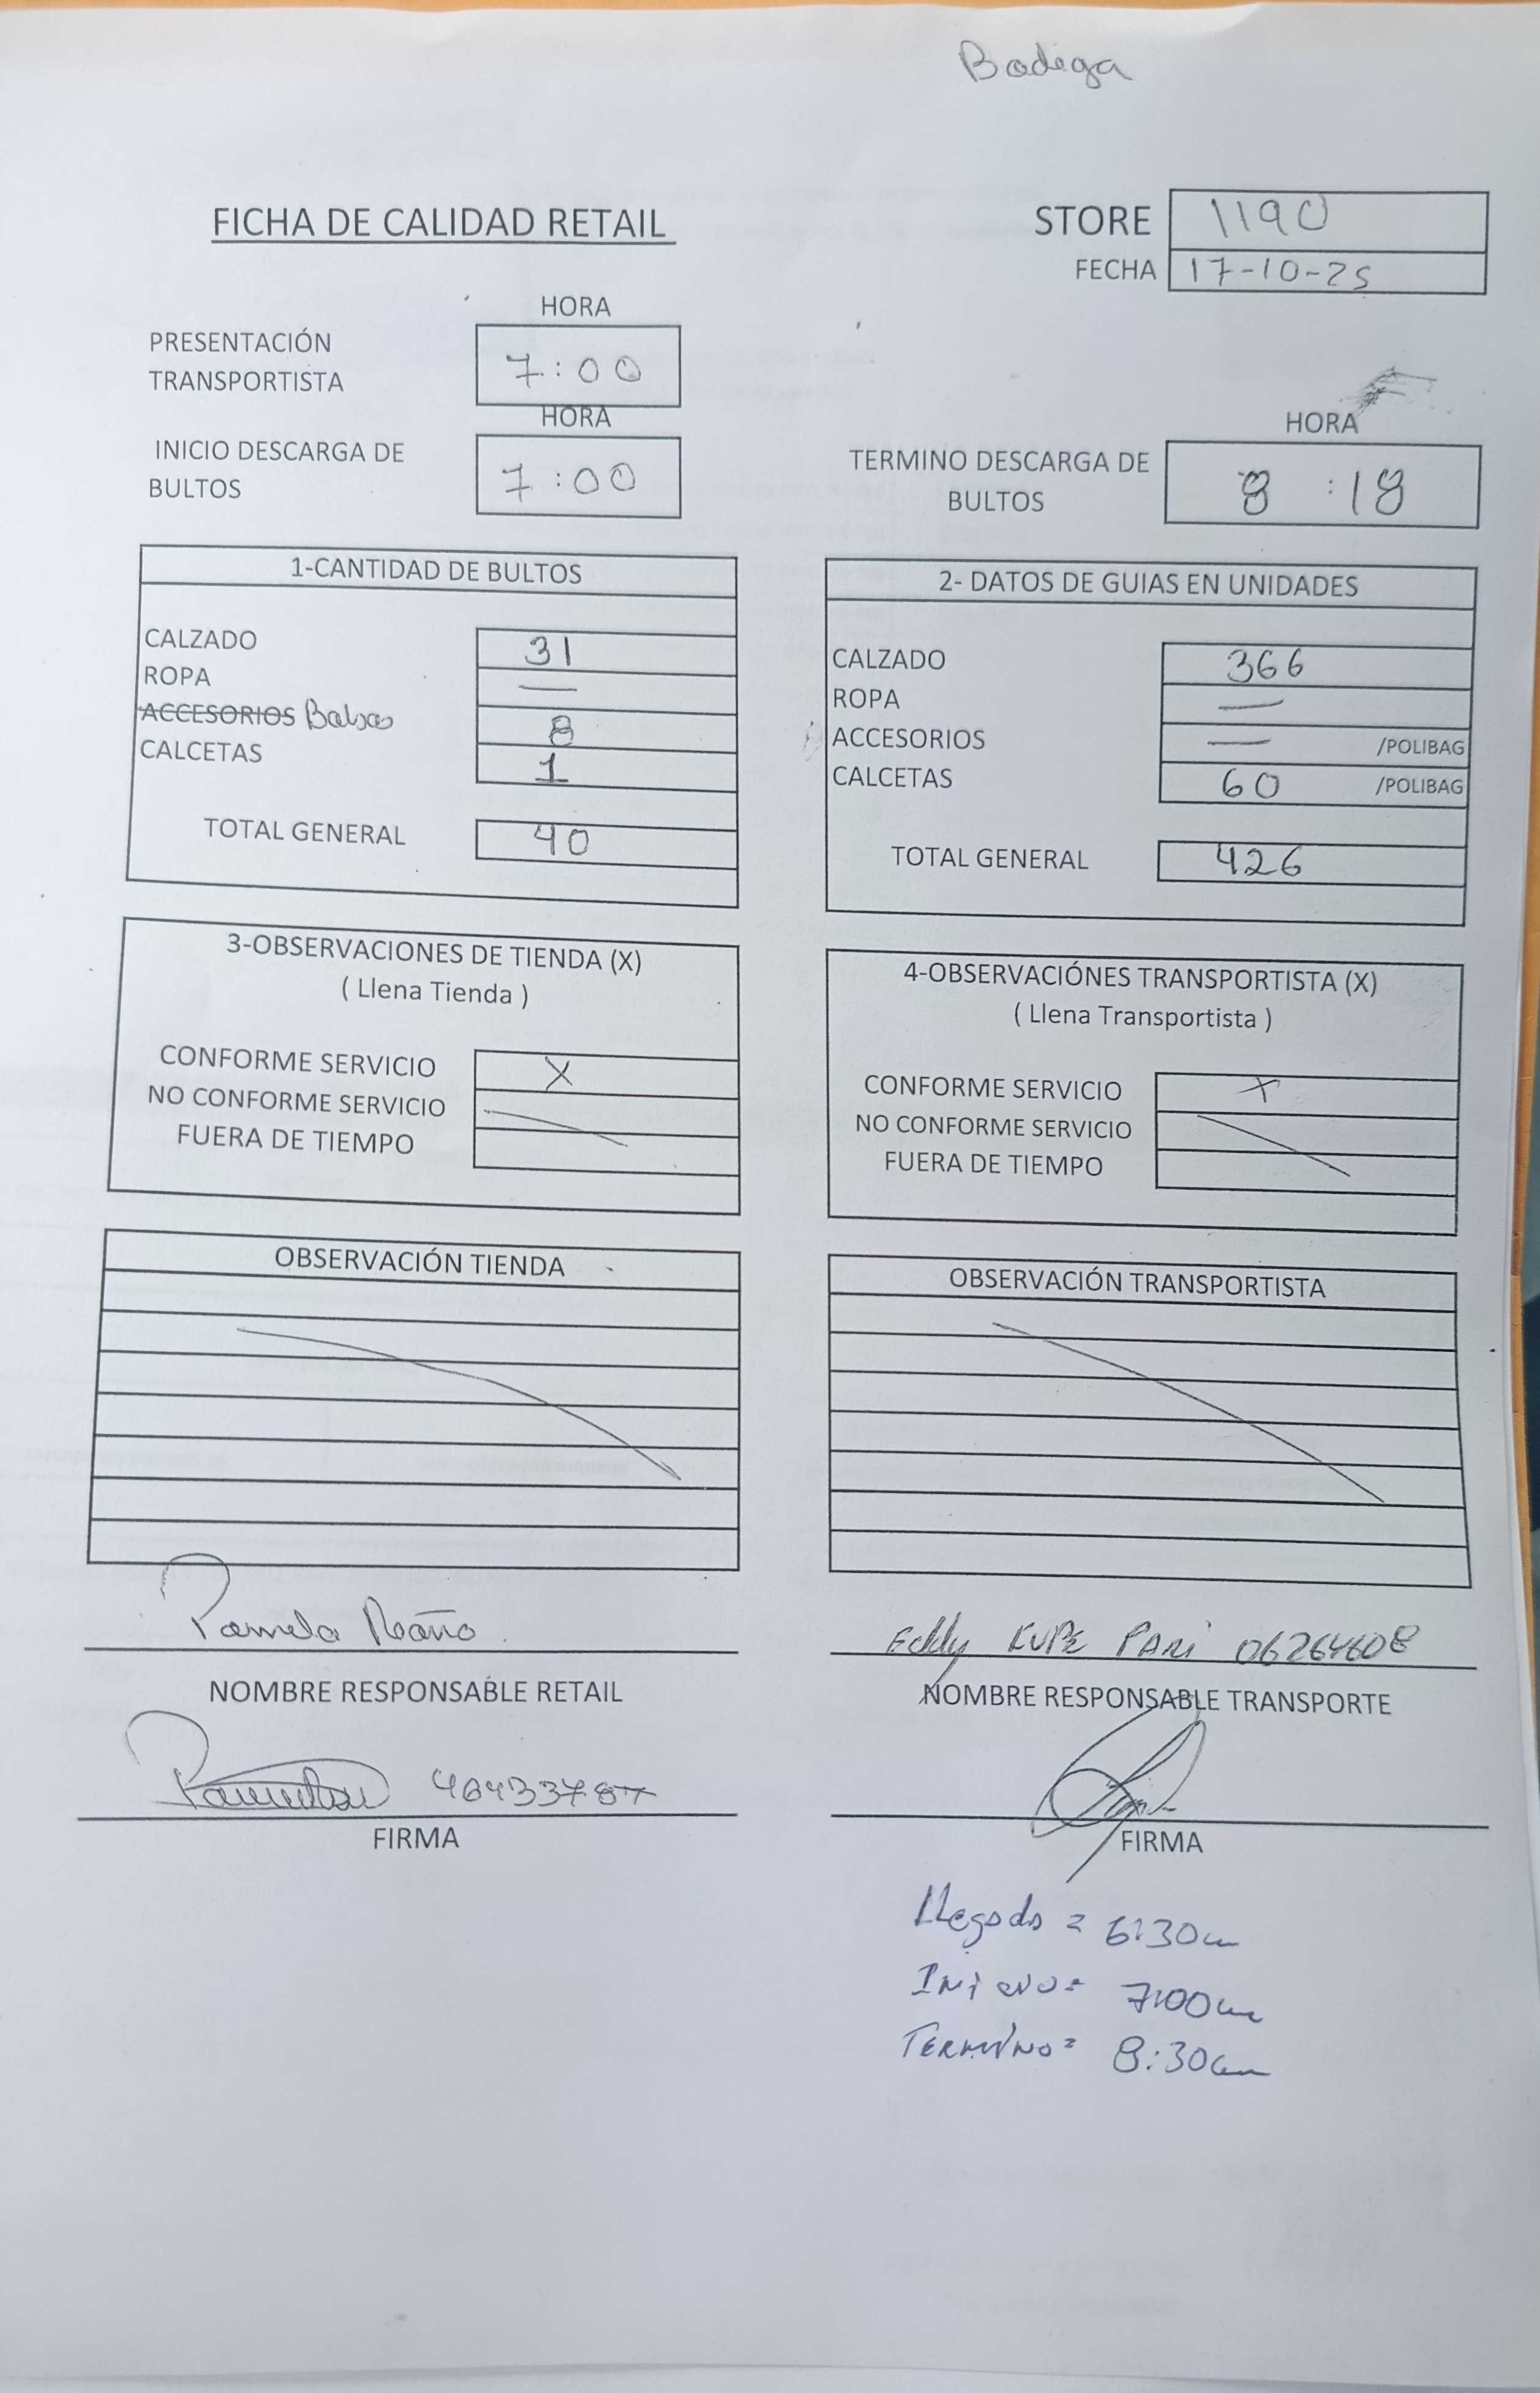 Bodega
FICHA DE CALIDAD RETAIL
STORE 1190
FECHA 17-10-25
HORA
PRESENTACIÓN
TRANSPORTISTA
7:00
HORA
INICIO DESCARGA DE
BULTOS
7:00
HORA
TERMINO DESCARGA DE
BULTOS
8:18
1-CANTIDAD DE BULTOS
CALZADO 31
ROPA —
ACCESORIOS Bolsas 8
CALCETAS 1
TOTAL GENERAL 40
2- DATOS DE GUIAS EN UNIDADES
CALZADO 366
ROPA —
ACCESORIOS — /POLIBAG
CALCETAS 60 /POLIBAG
TOTAL GENERAL 426
3-OBSERVACIONES DE TIENDA (X)
( Llena Tienda )
CONFORME SERVICIO X
NO CONFORME SERVICIO
FUERA DE TIEMPO
4-OBSERVACIÓNES TRANSPORTISTA (X)
( Llena Transportista )
CONFORME SERVICIO X
NO CONFORME SERVICIO
FUERA DE TIEMPO
OBSERVACIÓN TIENDA
OBSERVACIÓN TRANSPORTISTA
Pamela
NOMBRE RESPONSABLE RETAIL
Eddy KUPE PARI 06264608
NOMBRE RESPONSABLE TRANSPORTE
40433787
FIRMA
FIRMA
Llegada = 6:30am
Inicio = 7:00am
TERMINO = 8:30am